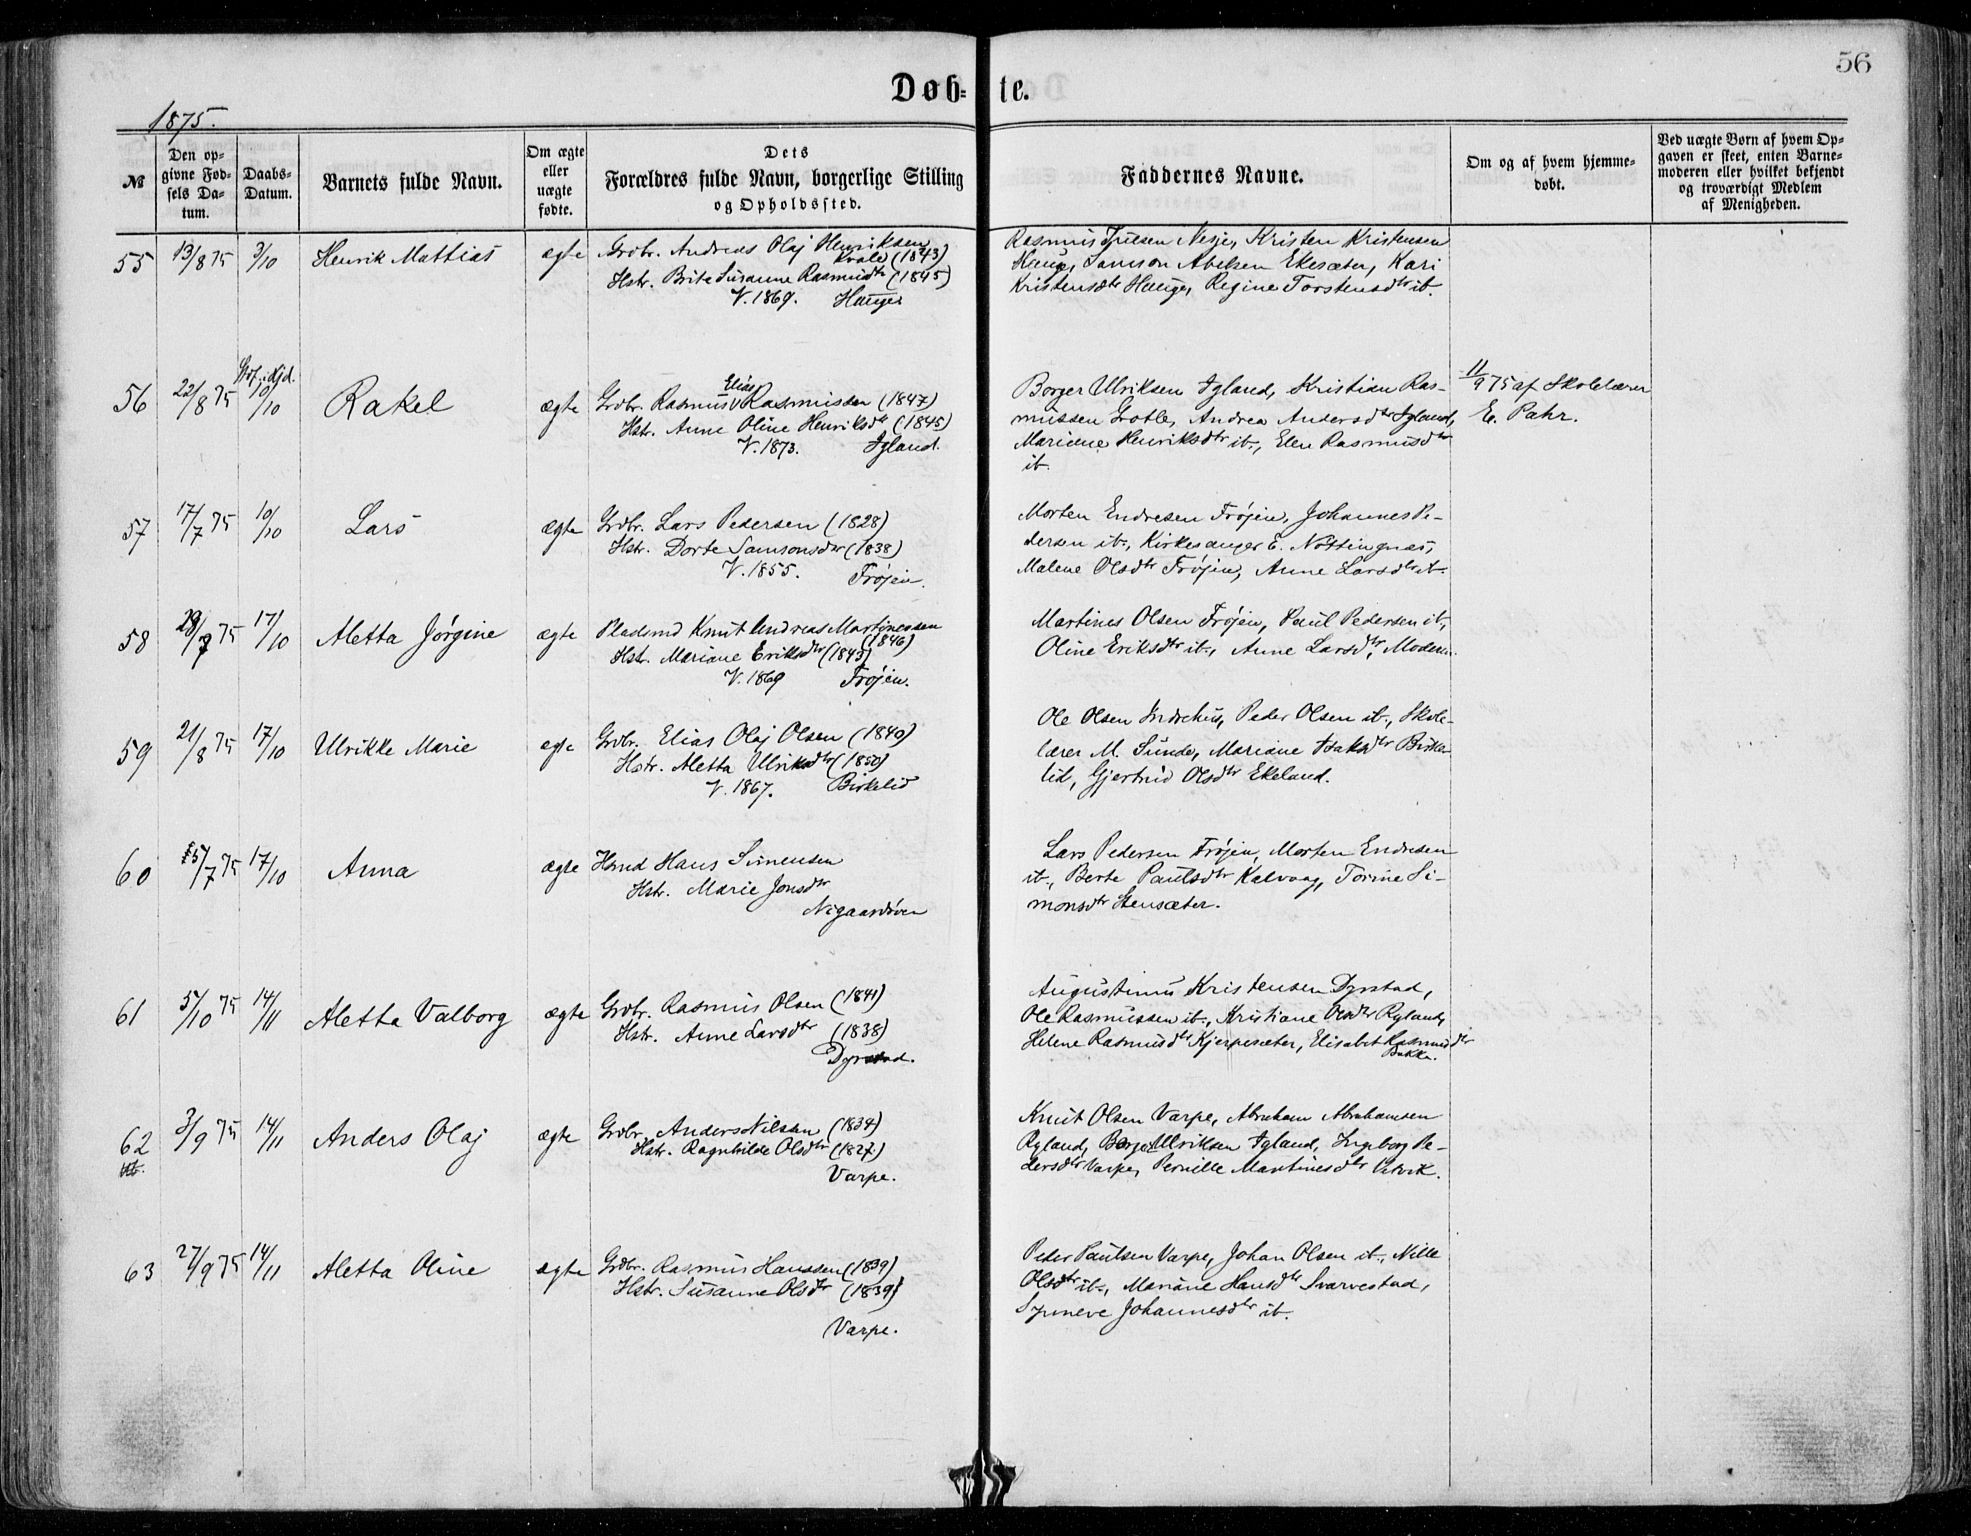 56
Døb=te.
1875.
№
Den op-
givne Fød-
sels Da-
tum.
Daabs-
Datum.
Barnets fulde Navn.
Om ægte
eller
uægte
fødte.
Dets
Forældres fulde Navn, borgerlige Stilling
og Opholdssted.
Faddernes Navne.
Om og af hvem hjemme-
døbt.
Ved uægte Børn af hvem Op-
gaven er skeet, enten Barne-
moderen eller hvilket bekjendt
og troværdigt Medlem
af Menigheden.
55 13/8 75 3/10 Henrik Mattias ægte Grdbr. Andreas Olaj Henriksen
Kvale (1843)
Hstr. Brite Susanne Rasmusdtr (1845)
V. 1869. Hauge
Rasmus Nesje, Kristen Kristensen
Hauge, Samson Abelsen Ekesæter, Kari
Kristensdtr Hauge, Regine Torstensdtr ib.
56 22/8 75 10/10 Rakel ægte Grdbr. Rasmus Elias Rasmussen (1847)
Hstr. Anne Oline Henriksdtr (1845)
V. 1873. Igland.
Borger Ulriksen Igland, Kristian Ras-
mussen Grotle, Andrea Andersdtr Igland,
Mariane Henriksdtr ib., Elen Rasmusdtr
ib.
11/9 75 af Skolelærer
E. Pahr.
57 17/7 75 10/10 Lars ægte Grdbr. Lars Pedersen (1828)
Hstr. Dorte Samsonsdtr (1838)
V. 1855. Frøjen.
Morten Endresen Frøjen, Johannes Pe-
dersen ib., Kirkesanger E. Nottingnæs,
Malene Olsdtr Frøjen, Anne Larsdtr ib.
58 28/7 75 17/10 Aletta Jørgine ægte Pladsmd Knut Andreas Martinussen
(1846)
Hstr. Mariane Eriksdtr (1843)
V. 1869 Frøjen.
Martines Olsen Frøjen, Paul Pedersen ib.,
Oline Eriksdtr ib., Anne Larsdtr, Moderen.
59 21/8 75 17/10 Ulrikke Marie ægte Grdbr. Elias Olaj Olsen (1840)
Hstr. Aletta Ulriksdtr (1850)
V. 1867. Birkelid
Ole Olsen Indrehus, Peder Olsen ib., Skole-
lærer M. Sunde, Mariane Isaksdtr Birke-
lid, Gjertrud Olsdtr Ekeland.
60 15/7 75 17/10 Anna ægte Hsmd Hans Simensen
Hstr. Marie Jonsdtr
Nigaardsøren
Lars Pedersen Frøjen, Morten Endresen
ib., Berte Paulsdtr Kalvaag, Torine Si-
monsdtr Stensæter.
61 5/10 75 14/11 Aletta Valborg ægte Grdbr. Rasmus Olsen (1841)
Hstr. Anne Larsdtr (1838)
Dyrstad.
Augustinus Kristensen Dyrstad,
Ole Rasmussen ib., Kristiane Olsdtr Rylands,
Helene Rasmusdtr Kjerpesæter, Elisabet Rasmusdtr
Bakke.
62 3/9 75 14/11 Anders Olaj ægte Grdbr. Anders Nilsen (1834)
Hstr. Ragnhilde Olsdtr (1827)
Varpe.
Knut Olsen Varpe, Abraham Abrahamsen
Ryland, Borger Ulriksen Igland, Ingeborg Pe-
dersdtr Varpe, Pernille Martinesdtr
63 27/9 75 14/11 Aletta Oline ægte Grdbr. Rasmus Hanssen (1839)
Hstr. Susanne Olsdtr (1839)
Varpe.
Peter Paulsen Varpe, Johan Olsen ib., Nille
Olsdtr ib., Mariane Hansdtr Svarvestad,
Synneve Johannesdtr ib.